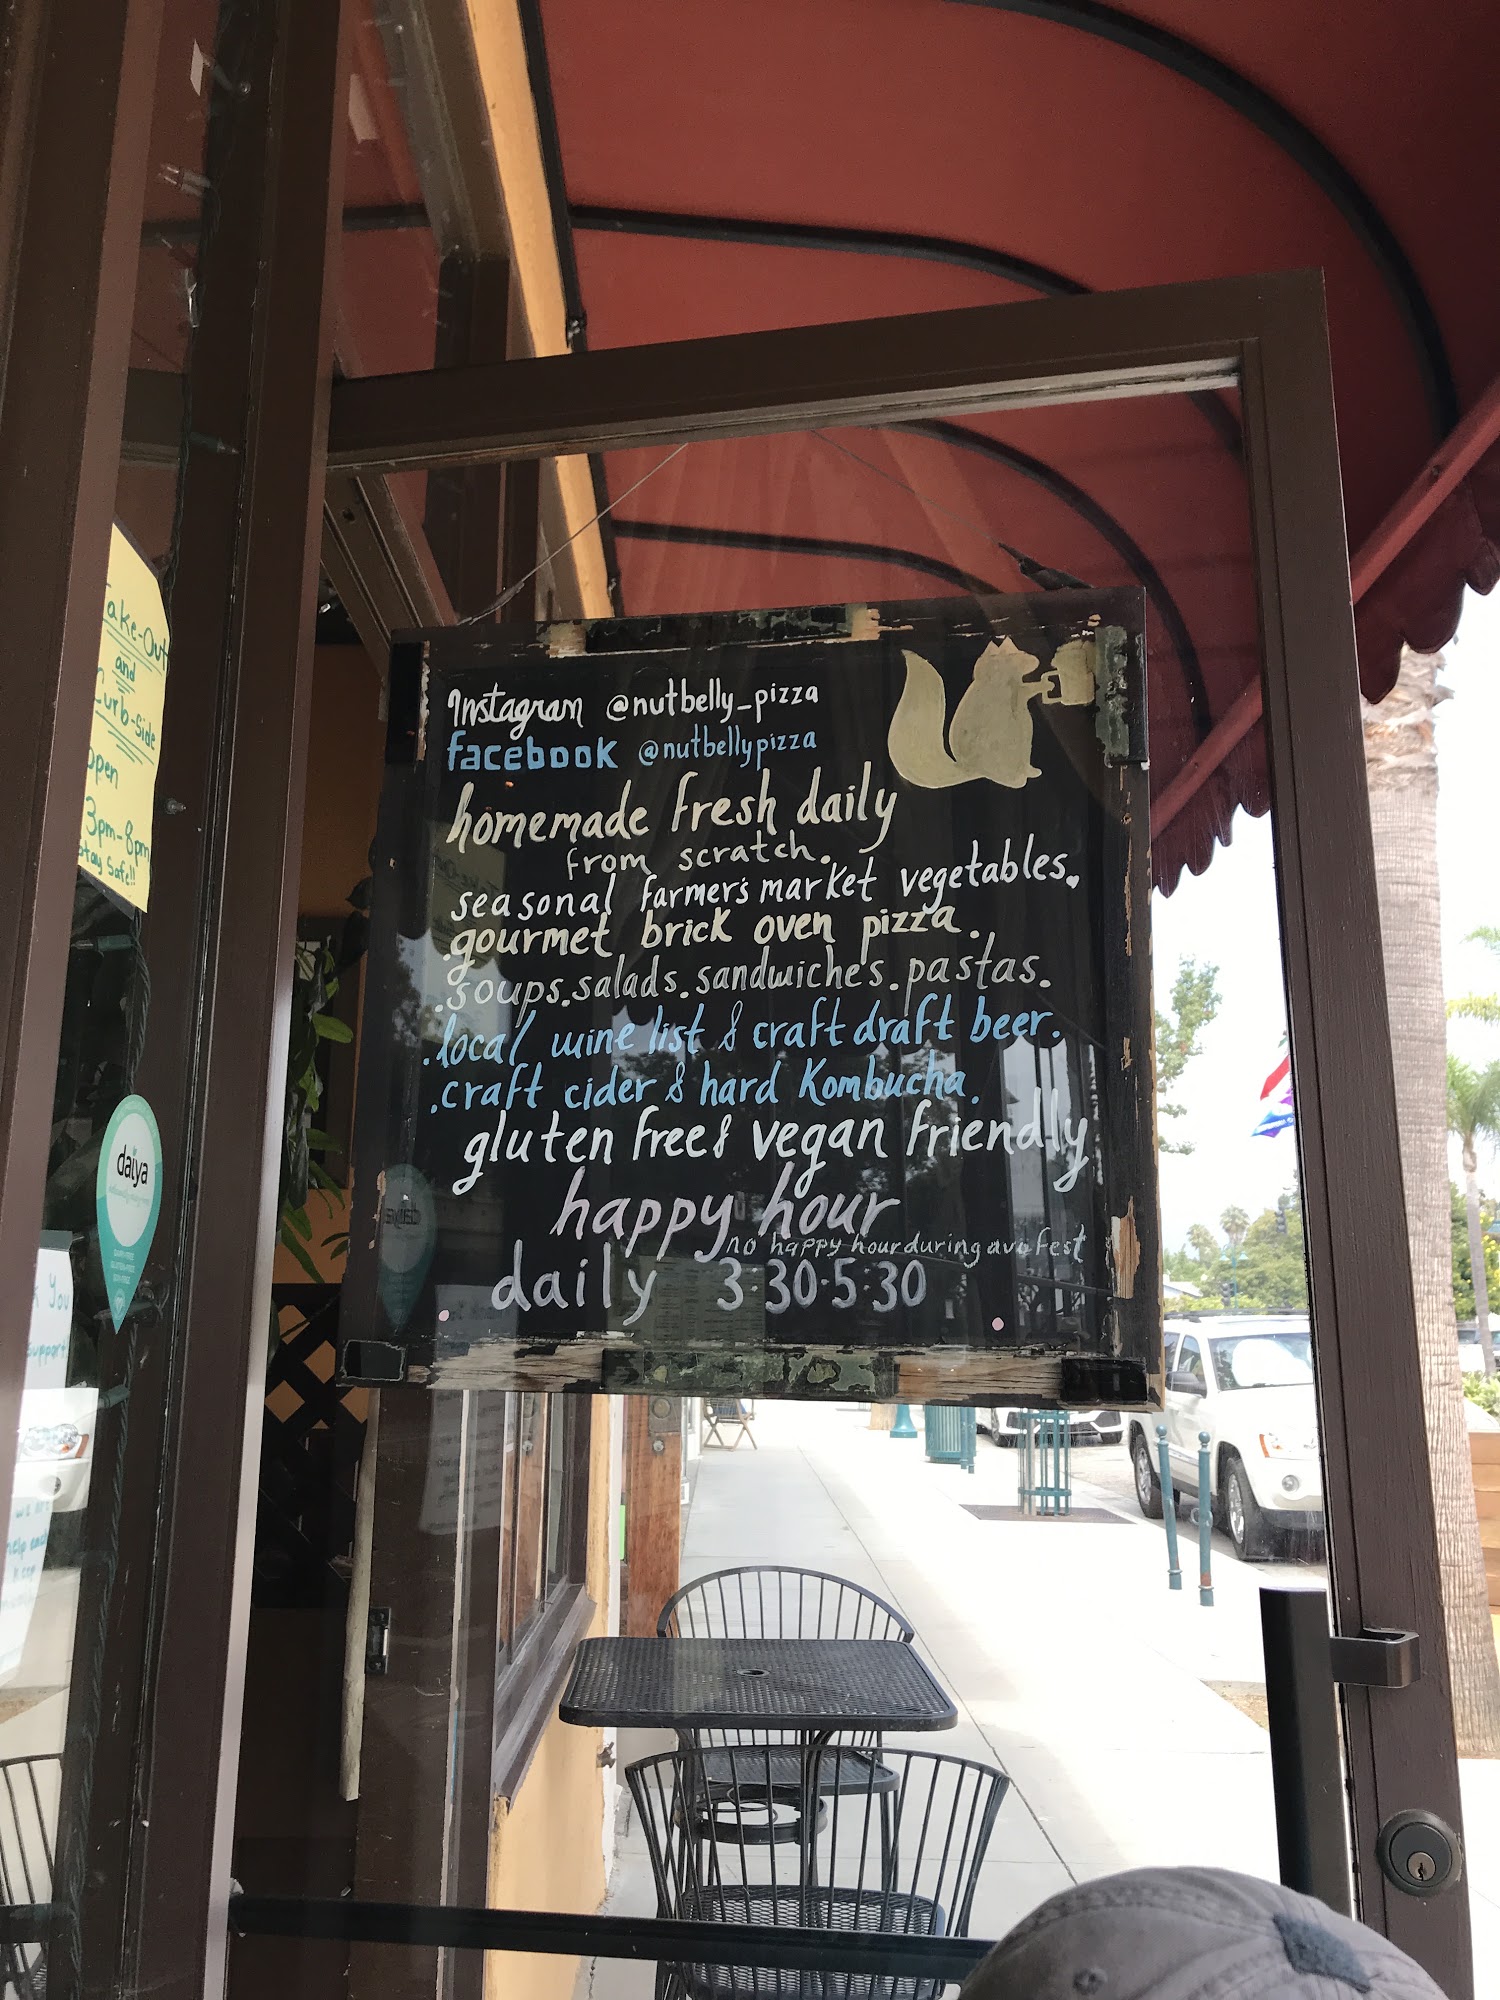 Instagram @nutbelly_pizza
facebook @nutbellypizza
homemade fresh daily
from scratch.
seasonal farmer's market vegetables.
.gourmet brick oven pizza.
.soups.salads.sandwiches.pastas.
.local wine list & craft draft beer.
.craft cider & hard Kombucha.
gluten free & vegan friendly
happy hour
no happy hour during avo fest
daily 3:30-5:30
Take-Out
and
Curb-side
open
3pm-8pm
Stay Safe!!
daiya
You
support